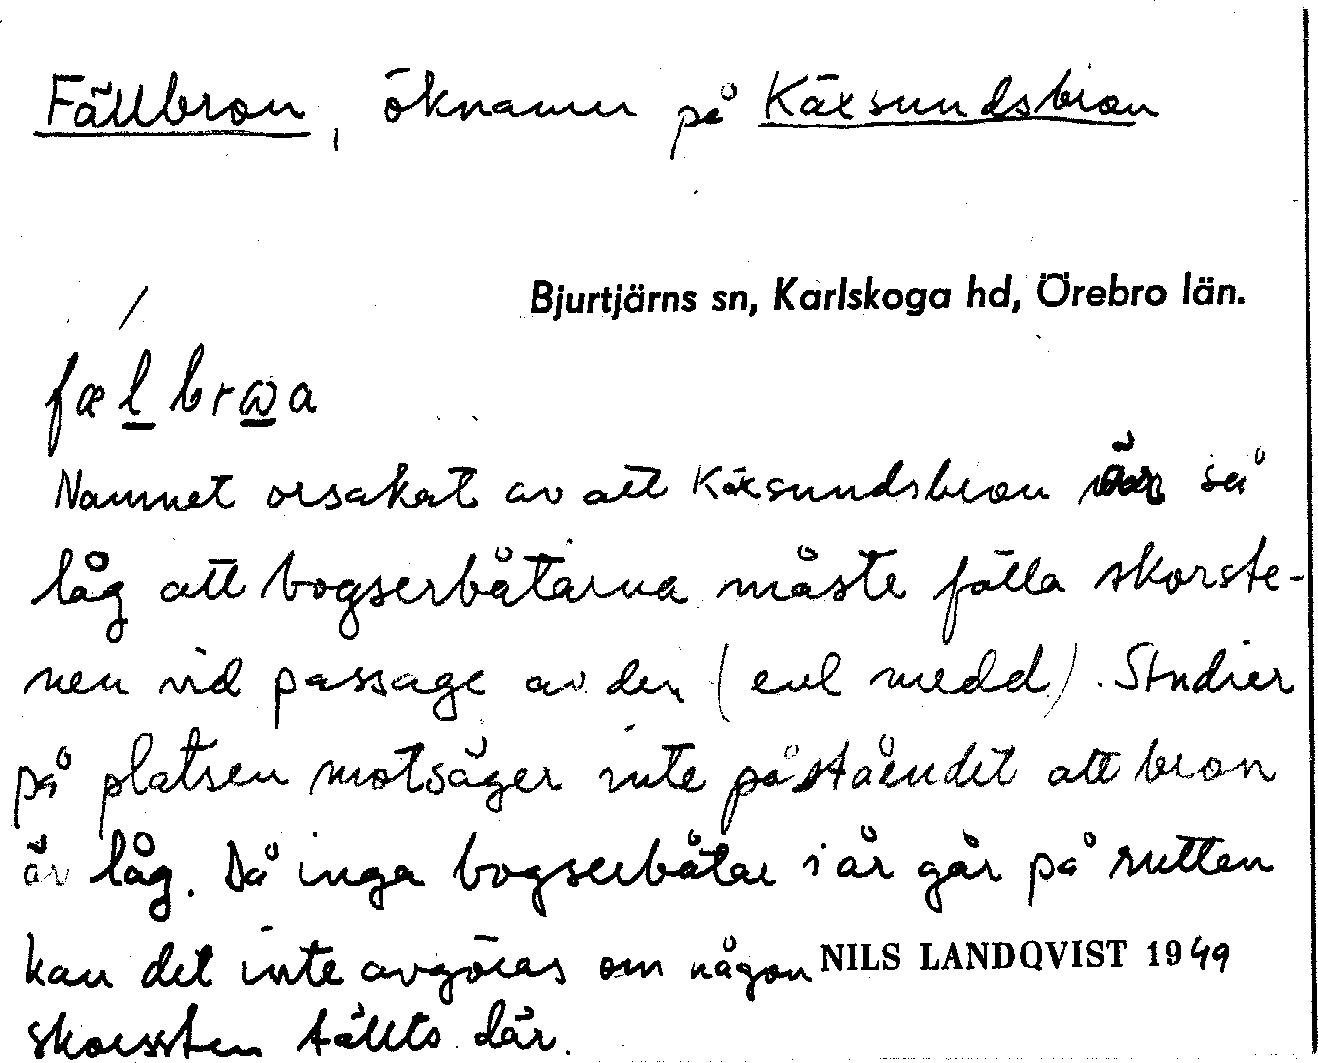 Fällbron, öknamn på Käxsundsbron
Bjurtjärns sn, Karlskoga hd, Örebro län.
Namnet orsakat av att Käxsundsbron är så
låg att bogserbåtarna måste fälla skorste-
nen vid passage av den (enl medd). Studier
på platsen motsäger inte påståendet att bron
är låg. Då inga bogserbåtar i år går på rutten
kan det inte avgöras om någon
NILS LANDQVIST 1949
skorsten fällts där.